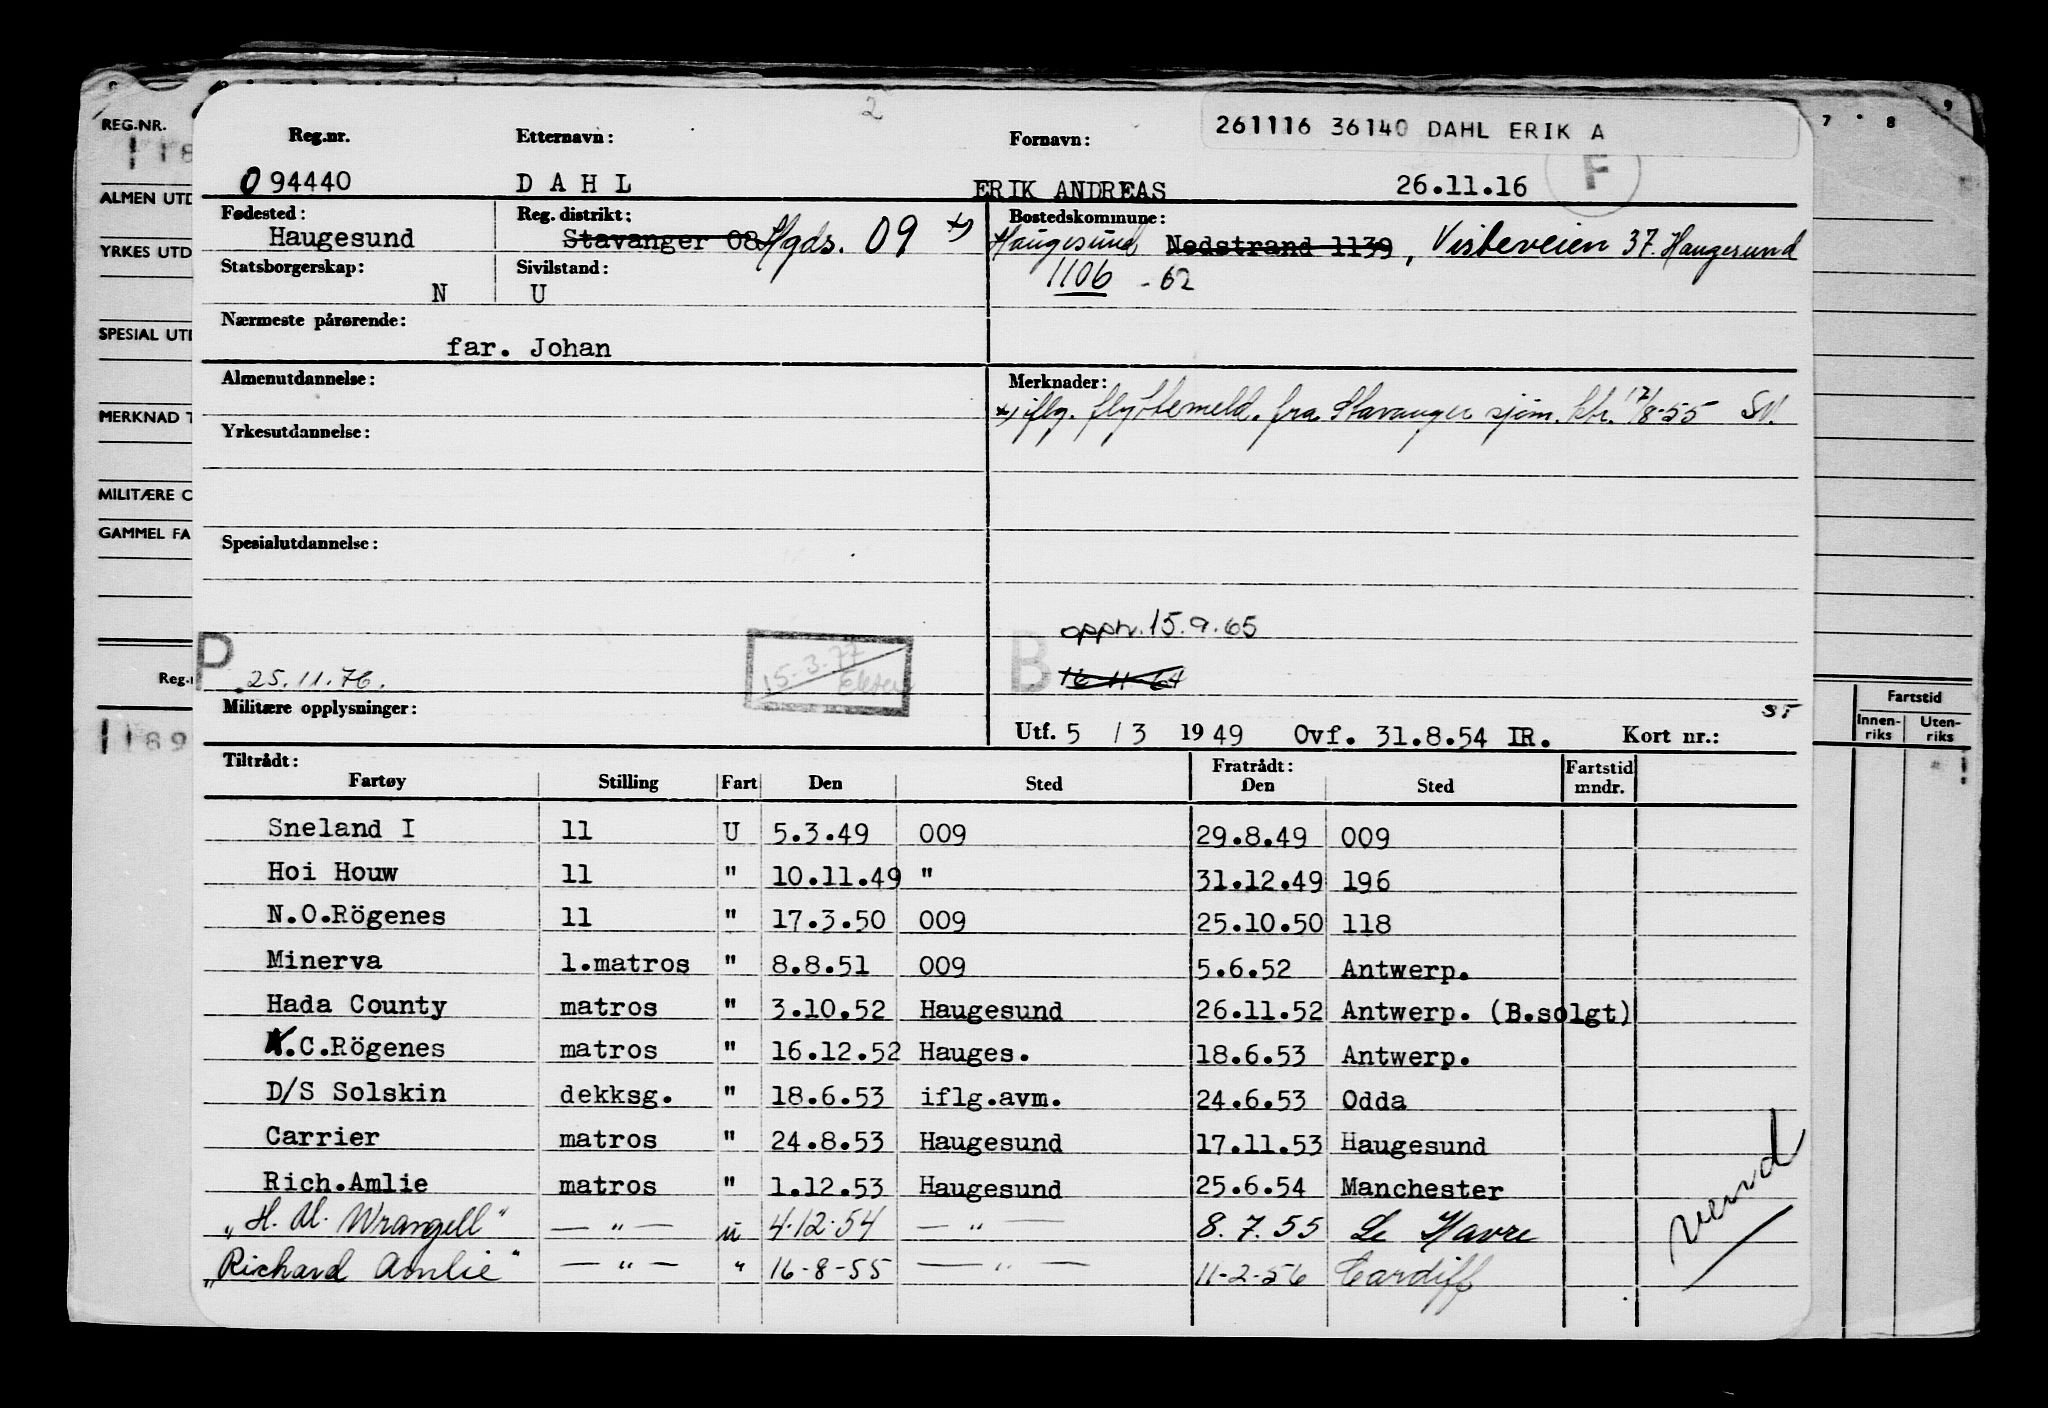 2
261116 36140 DAHL ERIK A
7 8 9
REG.NR.
Reg.nr. Etternavn: Fornavn:
F
094440 D A H L ERIK ANDREAS 26.11.16
ALMEN UTD
Fødested: Reg. distrikt: Bostedskommune:
Haugesund Stavanger 08 Hgds. 09 x) Haugesund Nedstrand 1139, Visteveien 37. Haugesund
YRKES UTD
Statsborgerskap: Sivilstand: 1106 - 62
N U
Nærmeste pårørende:
SPESIAL UTD
far. Johan
Almenutdannelse: Merknader:
x) iflg. flyttemeld. fra Stavanger sjøm. ktr. 12/8-55 SN.
MERKNAD T
Yrkesutdannelse:
MILITÆRE O
GAMMEL FA
Spesialutdannelse:
P B opptr. 15.9.65
Reg.n
25.11.76. 15-3-77 16-11-64
Militære opplysninger:
Utf. 5 / 3 1949 Ovf. 31.8.54 IR. Kort nr.: ST
Fartstid
Innen-riks Uten-riks
Tiltrådt: Fratrådt: Fartstid mndr.
Fartøy Stilling Fart Den Sted Den Sted
Sneland I 11 U 5.3.49 009 29.8.49 009
Hoi Houw 11 " 10.11.49 " 31.12.49 196
N.O.Rögenes 11 " 17.3.50 009 25.10.50 118
Minerva l.matros " 8.8.51 009 5.6.52 Antwerp.
Hada County matros " 3.10.52 Haugesund 26.11.52 Antwerp. (B.solgt)
.C.Rögenes matros " 16.12.52 Hauges. 18.6.53 Antwerp.
D/S Solskin dekksg. " 18.6.53 iflg.avm. 24.6.53 Odda
Carrier matros " 24.8.53 Haugesund 17.11.53 Haugesund
Rich.Amlie matros " 1.12.53 Haugesund 25.6.54 Manchester
„H. M. Wrangell" — " — u 4-12-54 — " — 8.7.55 Le Havre
„Richard Amlie" — " — " 16-8-55 — " — 11-2-56 Cardiff
vend